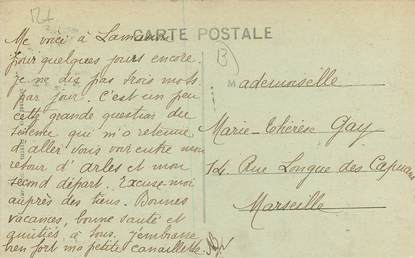 CARTE POSTALE
Me voici à Lamanon
pour quelques jours encore.
je ne dis pas trois mots
par jour. C'est un peu
cette grande question du
silence qui m'a retenue
d'aller vous voir entre mon
retour d'Arles et mon
second départ. Excuse-moi
auprès des tiens. Bonnes
vacances, bonne santé et
amitiés à tous. J'embrasse
bien fort ma petite canaillette.
Mademoiselle
Marie-Thérèse Gay
14 Rue Longue des Capucins
Marseille